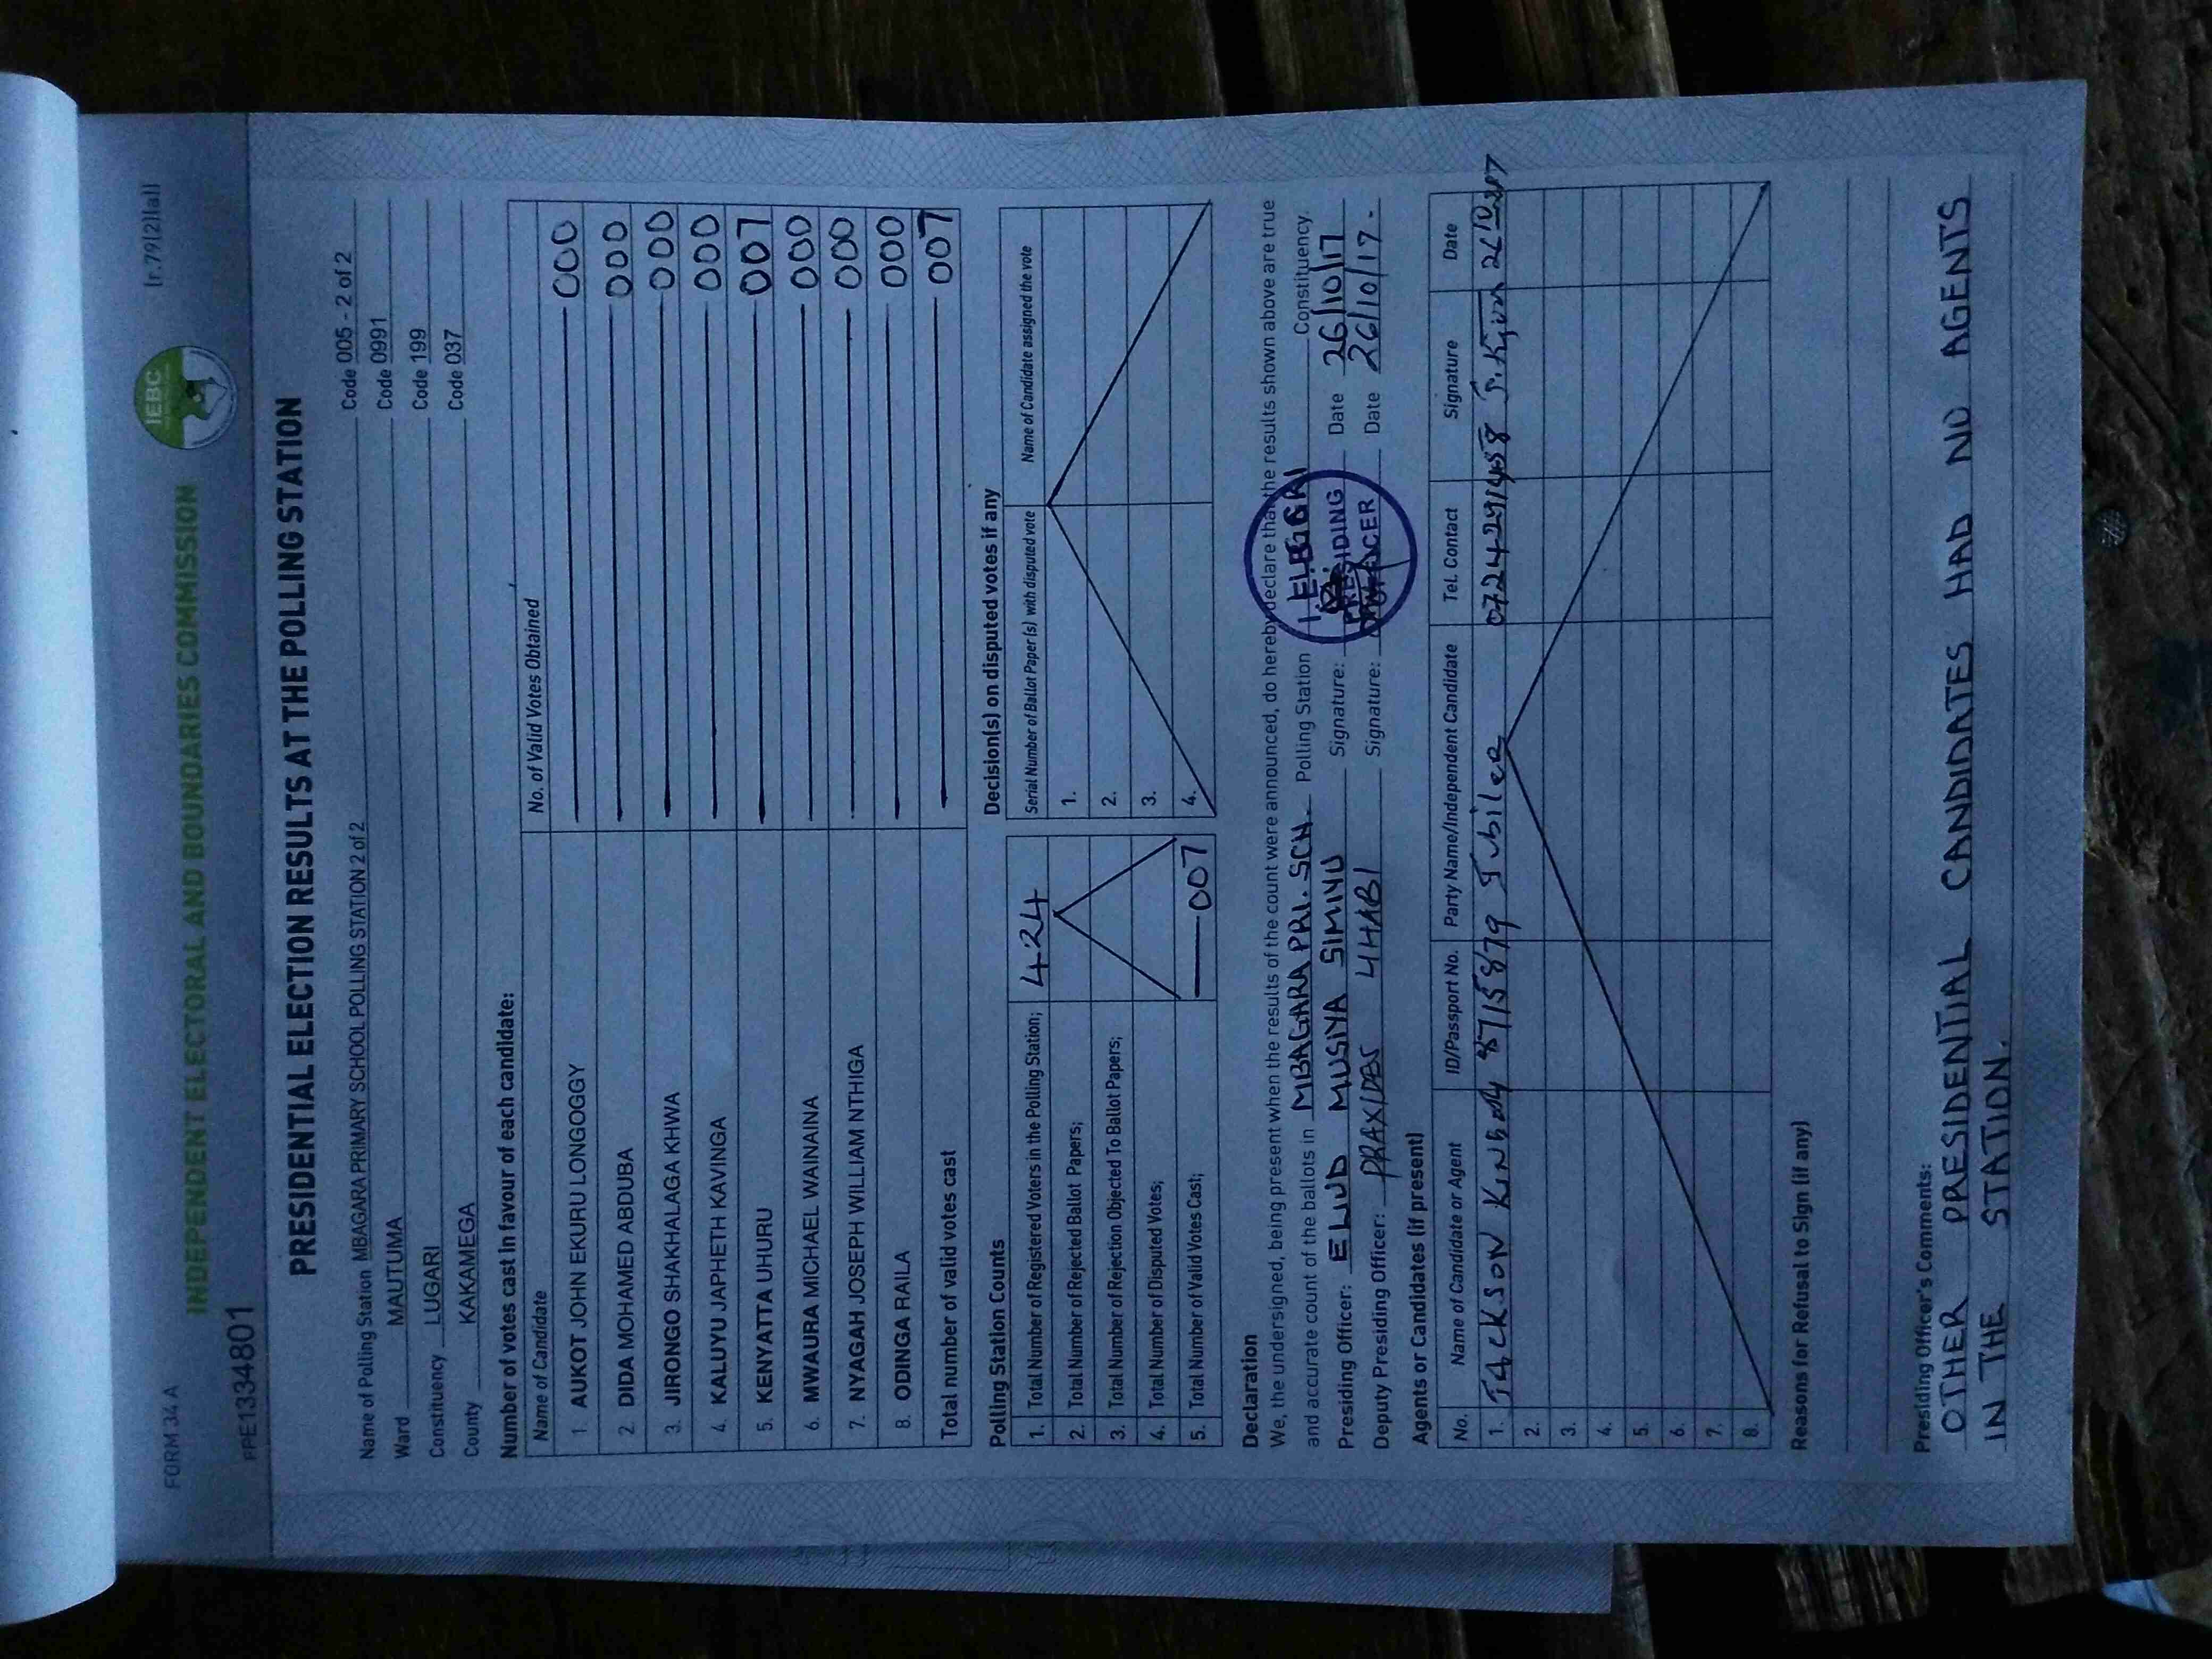 FORM 34 A
(r.79(2)(a))
IEBC
INDEPENDENT ELECTORAL AND BOUNDARIES COMMISSION
PPE1334801
PRESIDENTIAL ELECTION RESULTS AT THE POLLING STATION
Name of Polling Station MBAGARA PRIMARY SCHOOL POLLING STATION 2 of 2 Code 005 - 2 of 2
Ward MAUTUMA Code 0991
Constituency LUGARI Code 199
County KAKAMEGA Code 037
Number of votes cast in favour of each candidate:
Name of Candidate No. of Valid Votes Obtained
1. AUKOT JOHN EKURU LONGOGGY 000
2. DIDA MOHAMED ABDUBA 000
3. JIRONGO SHAKHALAGA KHWA 000
4. KALUYU JAPHETH KAVINGA 000
5. KENYATTA UHURU 007
6. MWAURA MICHAEL WAINAINA 000
7. NYAGAH JOSEPH WILLIAM NTHIGA 000
8. ODINGA RAILA 000
Total number of valid votes cast 007
Polling Station Counts
1. Total Number of Registered Voters in the Polling Station; 424
2. Total Number of Rejected Ballot Papers;
3. Total Number of Rejection Objected To Ballot Papers;
4. Total Number of Disputed Votes;
5. Total Number of Valid Votes Cast; 007
Decision(s) on disputed votes if any
Serial Number of Ballot Paper(s) with disputed vote Name of Candidate assigned the vote
1.
2.
3.
4.
Declaration
We, the undersigned, being present when the results of the count were announced, do hereby declare that the results shown above are true
and accurate count of the ballots in MBAGARA PRI. SCH. Polling Station Constituency.
Presiding Officer: ELIUD MUSIYA SIMIYU Signature: Date 26/10/17
Deputy Presiding Officer: PRAXIDES Signature: Date 26/10/17.
PRESIDING
OFFICER
Agents or Candidates (if present)
No. Name of Candidate or Agent ID/Passport No. Party Name/Independent Candidate Tel. Contact Signature Date
1. JACKSON 8715879 Jubilee 0724291458
2.
3.
4.
5.
6.
7.
8.
Reasons for Refusal to Sign (if any)
Presiding Officer's Comments:
OTHER PRESIDENTIAL CANDIDATES HAD NO AGENTS
IN THE STATION.